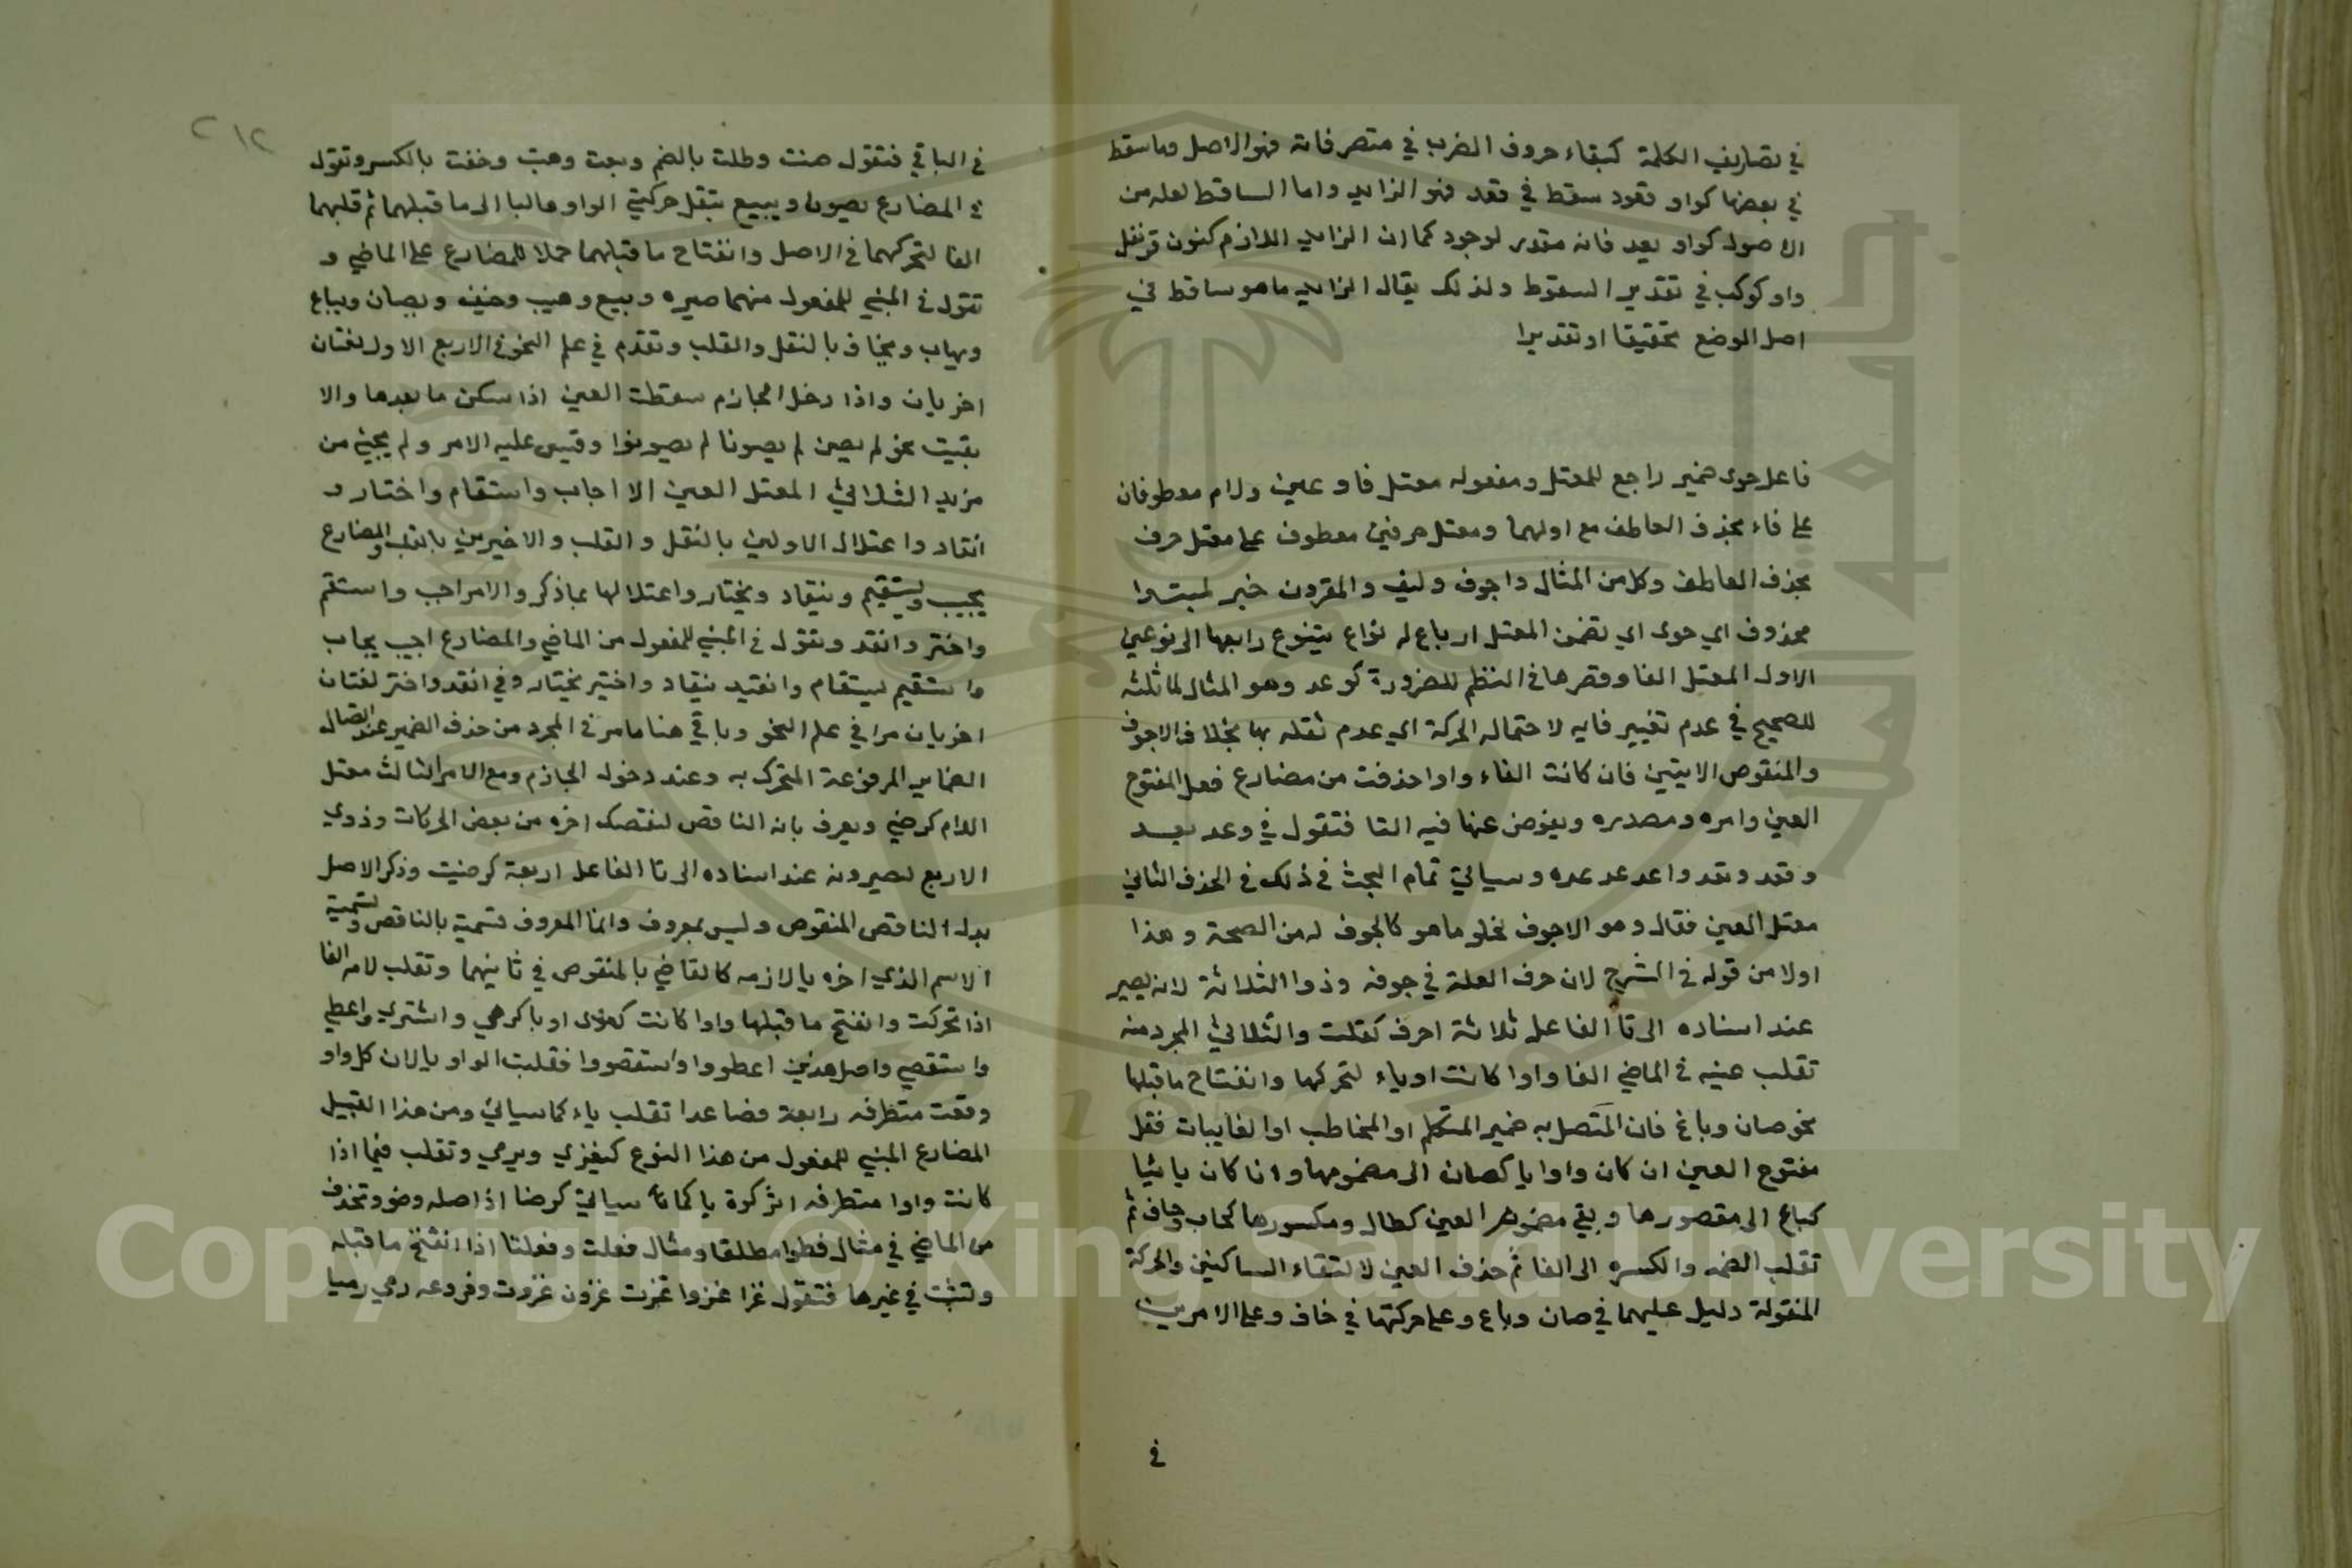 في تصاريف الكلمة كبقاء حروف الضرب في متصرفاته فهو الاصل وما سقط
في بعضها كواو قعود سقط في قعد فهو الزايد واما الساقط لعله من
الاصول كواو يعد فانه مقدر لوجود كما ان الزايد اللازم كنون قرنفل
واو كوكب في تقدير السقوط ولذلك يقال الزايد ما هو ساقط في
اصل الوضع تحقيقا او تقديرا
فاعل حوى ضمير راجع للمعتل ومفعوله معتل فا وعين ولام معطوفان
على فاء بحذف العاطف مع اولهما ومعتل حرفين معطوف على معتل حرف
بحذف العاطف وكل من المثال واجوف ولفيف والمقرون خبر لمبتدا
محذوف اي حوى اي تضمن المعتل ارباع له انواع يتنوع رابعها الى نوعين
الاول المعتل الفا وقصرها في النظم للضرورة كوعد وهو المثال لماثلثه
للصحيح في عدم تغيير فايه لاحتماله الحركة اي عدم ثقله بها بخلاف الاجوف
والمنقوص الاتيين فان كانت الفاء واوا حذفت من مضارع فعل المفتوح
العين وامره ومصدره ويعوض عنها فيه التا فتقول في وعد يعد
وقعد ونعد واعد عد عده وسياتي تمام البحث في ذلك في الحذف الثاني
معتل العين فقال وهو الاجوف لخلو ما هو كالجوف له من الصحة وهذا
اولا من قوله في الشرح لان حرف العلة في جوفه وذوا الثلاثة لانه يصير
عند اسناده الى تا الفاعل ثلاثة احرف كقلت والثلاثي المجرد منه
تقلب عينه في الماضي الفا واوا كانت او ياء لتحركها وانفتاح ما قبلها
نحو صان وباع فان اتصل به ضمير المتكلم او المخاطب او الغايبات فقل
مفتوح العين ان كان واوا يا كصان الى مضمومها وان كان يائيا
كباع الى مقصورها وبقي مضموم العين كطال ومكسورها كهاب وخاف ثم
تقلب الضمه والكسره الى الفا ثم حذف العين لالتقاء الساكنين والحركة
المنقولة دليل عليهما في صان وباع وعلى حركتها في خاف وعلى الامرين
في
٢١٢
في الباقي فتقول صنت وطلت بالضم وبعت وهبت وخفت بالكسر وتقول
في المضارع يصون ويبيع بنقل حركتي الواو واليا الى ما قبلهما ثم قلبهما
الفا لتحركهما في الاصل وانفتاح ما قبلهما حملا للمضارع على الماضي و
تقول في المبني للمفعول منهما صيره وبيع وهيب وخيف ويصان ويباع
ويهاب ويخاف بالنقل والقلب وتقدم في علم النحو في الاربع الاول لغتان
اخريان واذا دخل الجازم سقطت العين اذا سكن ما بعدها والا
بقيت نحو لم يصن لم يصونا لم يصونوا وقيس عليه الامر ولم يجيء من
مزيد الثلاثي المعتل العين الا اجاب واستقام واختار و
انقاد واعتلال الاولين بالنقل والقلب والاخيرين بالقلب والمضارع
يجيب ويستقيم وينقاد ويختار واعتلالها بما ذكر والامر اجب واستقم
واختر وانقد وتقول في المبني للمفعول من الماضي والمضارع اجيب يجاب
واستقيم يستقام وانقيد ينقاد واختير يختار وفي انقد واختر لغتان
اخريان مرا في علم النحو وباقي هنا ما مر في المجرد من حذف الضمير عند اتصال
الضماير المرفوعة المتحركه به وعند دخول الجازم ومع الامر الثالث معتل
اللام كرضي ويعرف بانه الناقص لنقصك اخره من بعض الحركات وذوي
الاربع لصيرونه عند اسناده الى تا الفاعل اربعة كرضيت وذكر الاصل
بدل الناقص المنقوص وليس بمعروف وانما المعروف تسميته بالناقص وتسمية
الاسم الذي اخره يا لازمه كالقاضي بالمنقوص في ثانيهما وتقلب لامه الفا
اذا تحركت وانفتح ما قبلها واوا كانت كغزى او يا كرمى واشترى واعطى
واستقصى واصل هذين اعطووا واستقصووا فقلبت الواو يا لان كل واو
وقعت متطرفه رابعة فصاعدا تقلب ياء كما سياتي ومن هذا القبيل
المضارع المبني للمفعول من هذا النوع كيغزي ويرمي وتقلب فيما اذا
كانت واوا متطرفه اثر كرة يا كما سياتي كرضا اذ اصله رضو وتحذف
من الماضي في مثال فعلوا مطلقا ومثال فعلت وفعلتا اذا انفتح ما قبله
وتثبت في غيرها فتقول غزا غزوا غزت غزون غزوت وفروعه رمي رميا
Copyright © King Saud University
1957